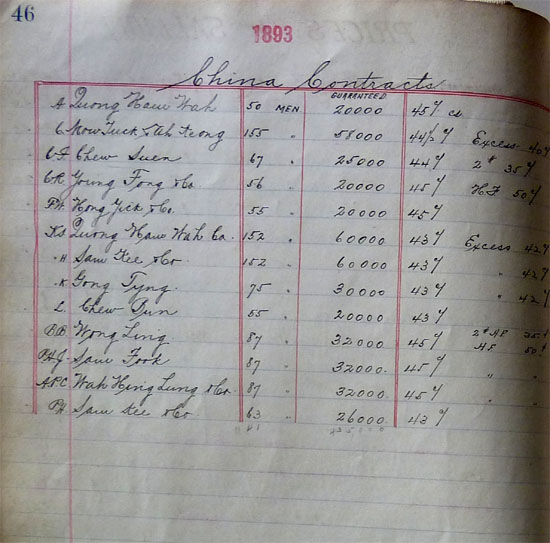 46
1893
China Contracts
GUARANTEED
A Quong Ham Wah 50 MEN 20000 45¢ cs
C Mow Tuck & Ah Keong 155 " 58000 44½¢ Excess 40¢
C F Chew Suen 67 " 25000 44¢ 2# 35¢
C R Young Fong & Co. 56 " 20000 45¢ H.F 50¢
PH Hong Yick & Co. 55 20000 45¢
KS Quong Ham Wah Co. 152 " 60000 43¢ Excess 42¢
" H Sam Kee & Co 152 " 60000 43¢ " 42¢
" K Gong Tyng 75 " 30000 43¢ " 42¢
L. Chew Dun 55 " 20000 43¢
B.B. Wong Ling 87 " 32000 45¢ 2# H.F. 35¢
H.F. 50¢
PHJ Sam Fook 87 " 32000 45¢ " "
APC Wah Hing Lung & Co. 87 " 32000 45¢ " "
PH Sam Kee & Co 63 " 26000 43¢